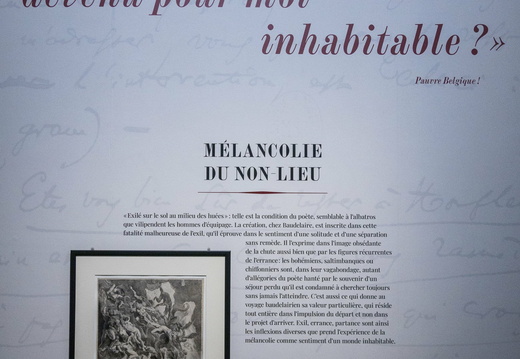 devenu pour moi
inhabitable ? »
Pauvre Belgique !
MÉLANCOLIE
DU NON-LIEU
« Exilé sur le sol au milieu des huées » : telle est la condition du poète, semblable à l'albatros
que vilipendent les hommes d'équipage. La création, chez Baudelaire, est inscrite dans cette
fatalité malheureuse de l'exil, qu'il éprouve dans le sentiment d'une solitude et d'une séparation
sans remède. Il l'exprime dans l'image obsédante
de la chute aussi bien que par les figures récurrentes
de l'errance : les bohémiens, saltimbanques ou
chiffonniers sont, dans leur vagabondage, autant
d'allégories du poète hanté par le souvenir d'un
séjour perdu qu'il est condamné à chercher toujours
sans jamais l'atteindre. C'est aussi ce qui donne au
voyage baudelairien sa valeur particulière, qui réside
tout entière dans l'impulsion du départ et non dans
le projet d'arriver. Exil, errance, partance sont ainsi
les inflexions diverses que prend l'expérience de la
mélancolie comme sentiment d'un monde inhabitable.